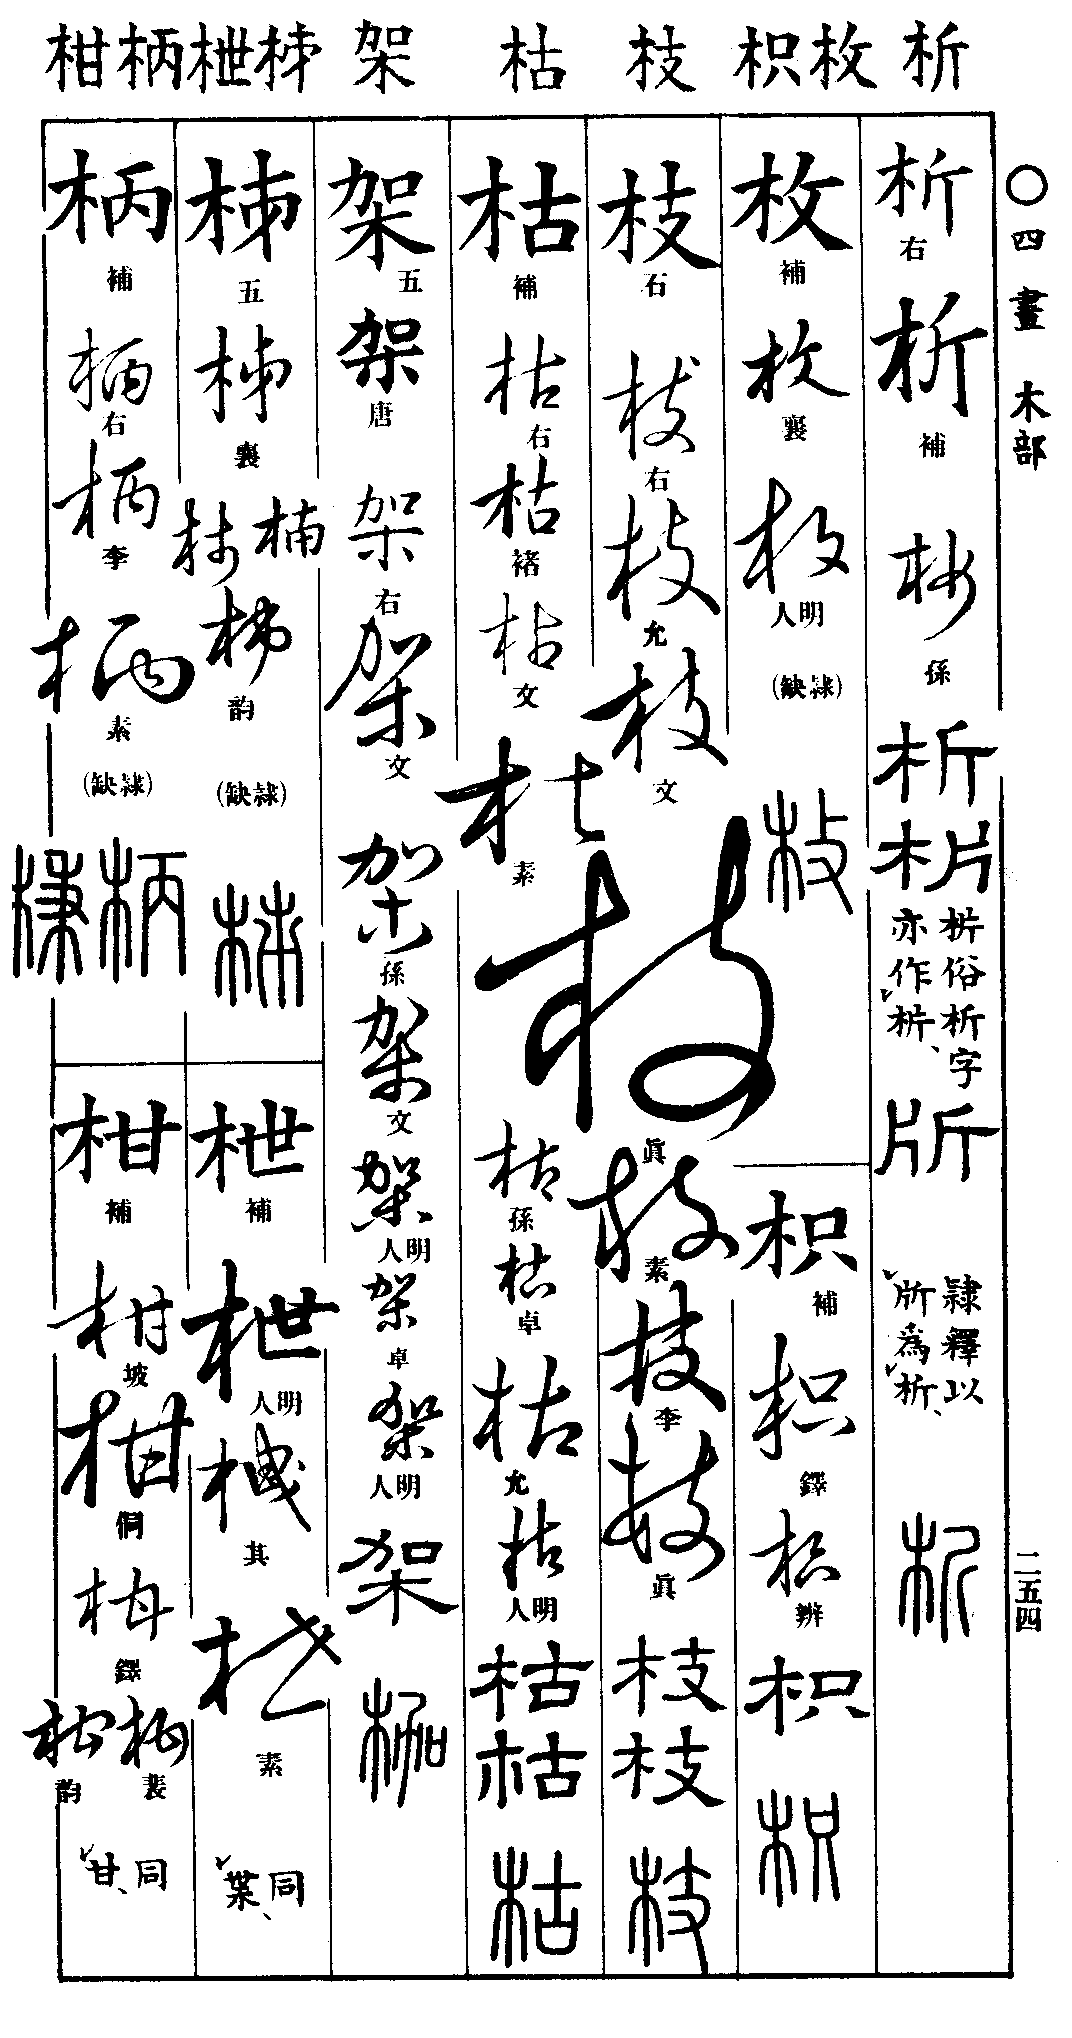 析 枚枳 枝 枯 架 柹枻柄柑
〇四畫 木部
二五四
析 右
析 補
析 孫
析
枂俗析字
亦作枂、
隸釋以
㸝為析、
析
枚 補
枚 襄
枚 明人
(隸缺)
枚
枳 補
枳 鐸
枳 辨
枳
枳
枝 石
枝 右
枝 允
枝 文
枝 眞
枝 素
枝 李
枝 眞
枝
枝
枝
枯 補
枯 右
枯 褚
枯 文
枯 素
枯 孫
枯 卓
枯 允
枯 明人
枯
枯
枯
架 五
架 唐
架 右
架 文
架 孫
架 文
架 明人
架 卓
架 明人
架
枷
柹 五
柹 襄
柹 韵
(隸缺)
柹
枻 補
枻 明人
枻 其
枻 素
同枼、
柄 補
柄 右
柄 李
柄 素
(隸缺)
柄 棅
柑 補
柑 坡
柑 侗
柑 鐸
柑 裴
柑 韵
同甘、